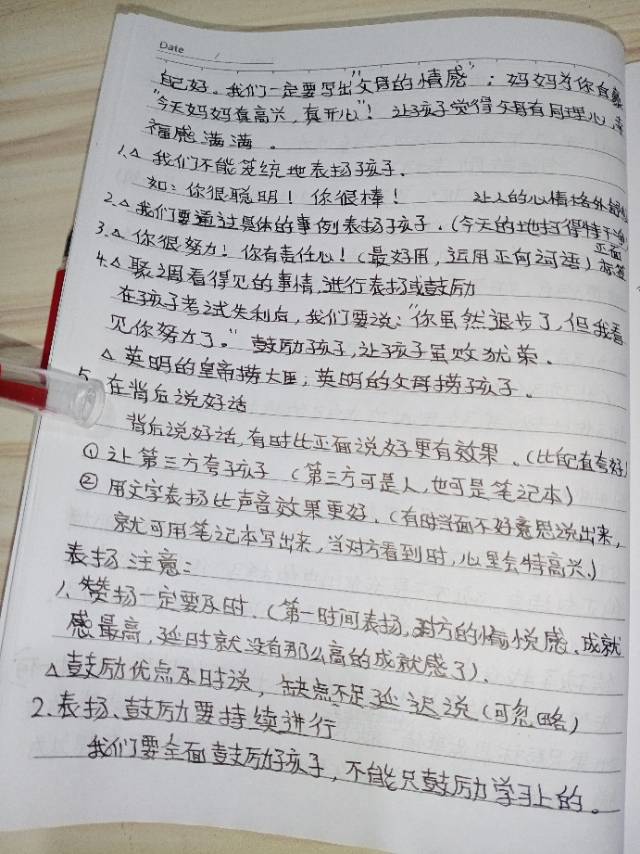 Date /
自己好。我们一定要写出"父母的情感"；妈妈为你自豪
"今天妈妈真高兴，真开心"！让孩子觉得父母有同理心，幸
福感满满。
1.△ 我们不能笼统地表扬孩子.
如：你很聪明！你很棒！ 让人的心情格外舒畅
2.△ 我们要通过具体的事例表扬孩子.（今天的地扫得特干净）
3.△ 你很努力！你有责任心！（最好用，运用正向词语）正面标签
4.△ 聚调看得见的事情,进行表扬或鼓励
在孩子考试失利后，我们要说："你虽然退步了,但我看
见你努力了。"鼓励孩子,让孩子虽败犹荣。
△ 英明的皇帝捞大臣；英明的父母捞孩子。
5. 在背后说好话
背后说好话,有时比正面说好更有效果。（比配直夸好）
① 让第三方夸孩子（第三方可是人,也可是笔记本）
② 用文字表扬比声音效果更好.（有时当面不好意思说出来，
就可用笔记本写出来,当对方看到时,心里会特高兴.）
表扬注意：
1、赞扬一定要及时.（第一时间表扬,对方的愉悦感、成就
感最高,延时就没有那么高的成就感了）.
△ 鼓励优点及时说，缺点不足延迟说（可忽略）
2.表扬、鼓励要持续进行
我们要全面鼓励好孩子，不能只鼓励学习上的。